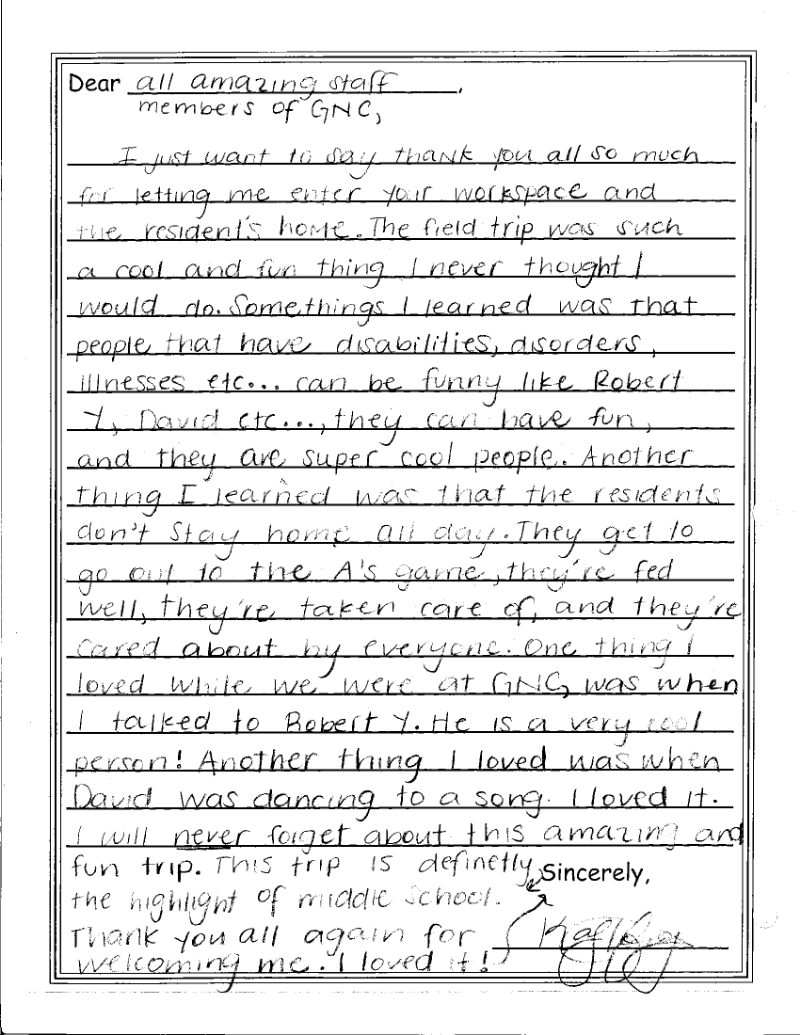 Dear all amazing staff,
members of GNC,
I just want to say thank you all so much
for letting me enter your workspace and
the resident's home. The field trip was such
a cool and fun thing I never thought I
would do. Somethings I learned was that
people that have disabilities, disorders,
illnesses etc... can be funny like Robert
Y, David etc..., they can have fun,
and they are super cool people. Another
thing I learned was that the residents
don't stay home all day. They get to
go out to the A's game, they're fed
well, they're taken care of, and they're
cared about by everyone. One thing I
loved while we were at GNC, was when
I talked to Robert Y. He is a very cool
person! Another thing I loved was when
David was dancing to a song. I loved it.
I will never forget about this amazing and
fun trip. This trip is definetly
the highlight of middle school.
Thank you all again for
welcoming me. I loved it!
Sincerely,